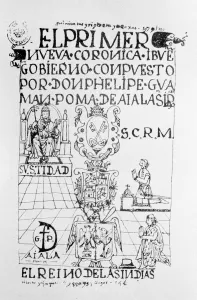 ELPRIMER
NVEVACORONICAIBVE
GOBIERNO·CONPVESTO
POR·DONPHELIPE·GVA
MAN·POMA·DE AIALA SI
S.C.R.M.
SVSTIDAD
AIALA
EL REINO DE LAS IN DIAS